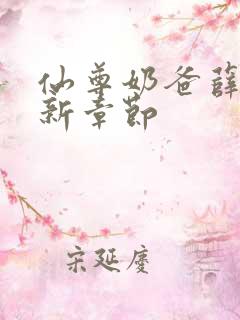 仙尊奶爸薛
新章节
宋延庆